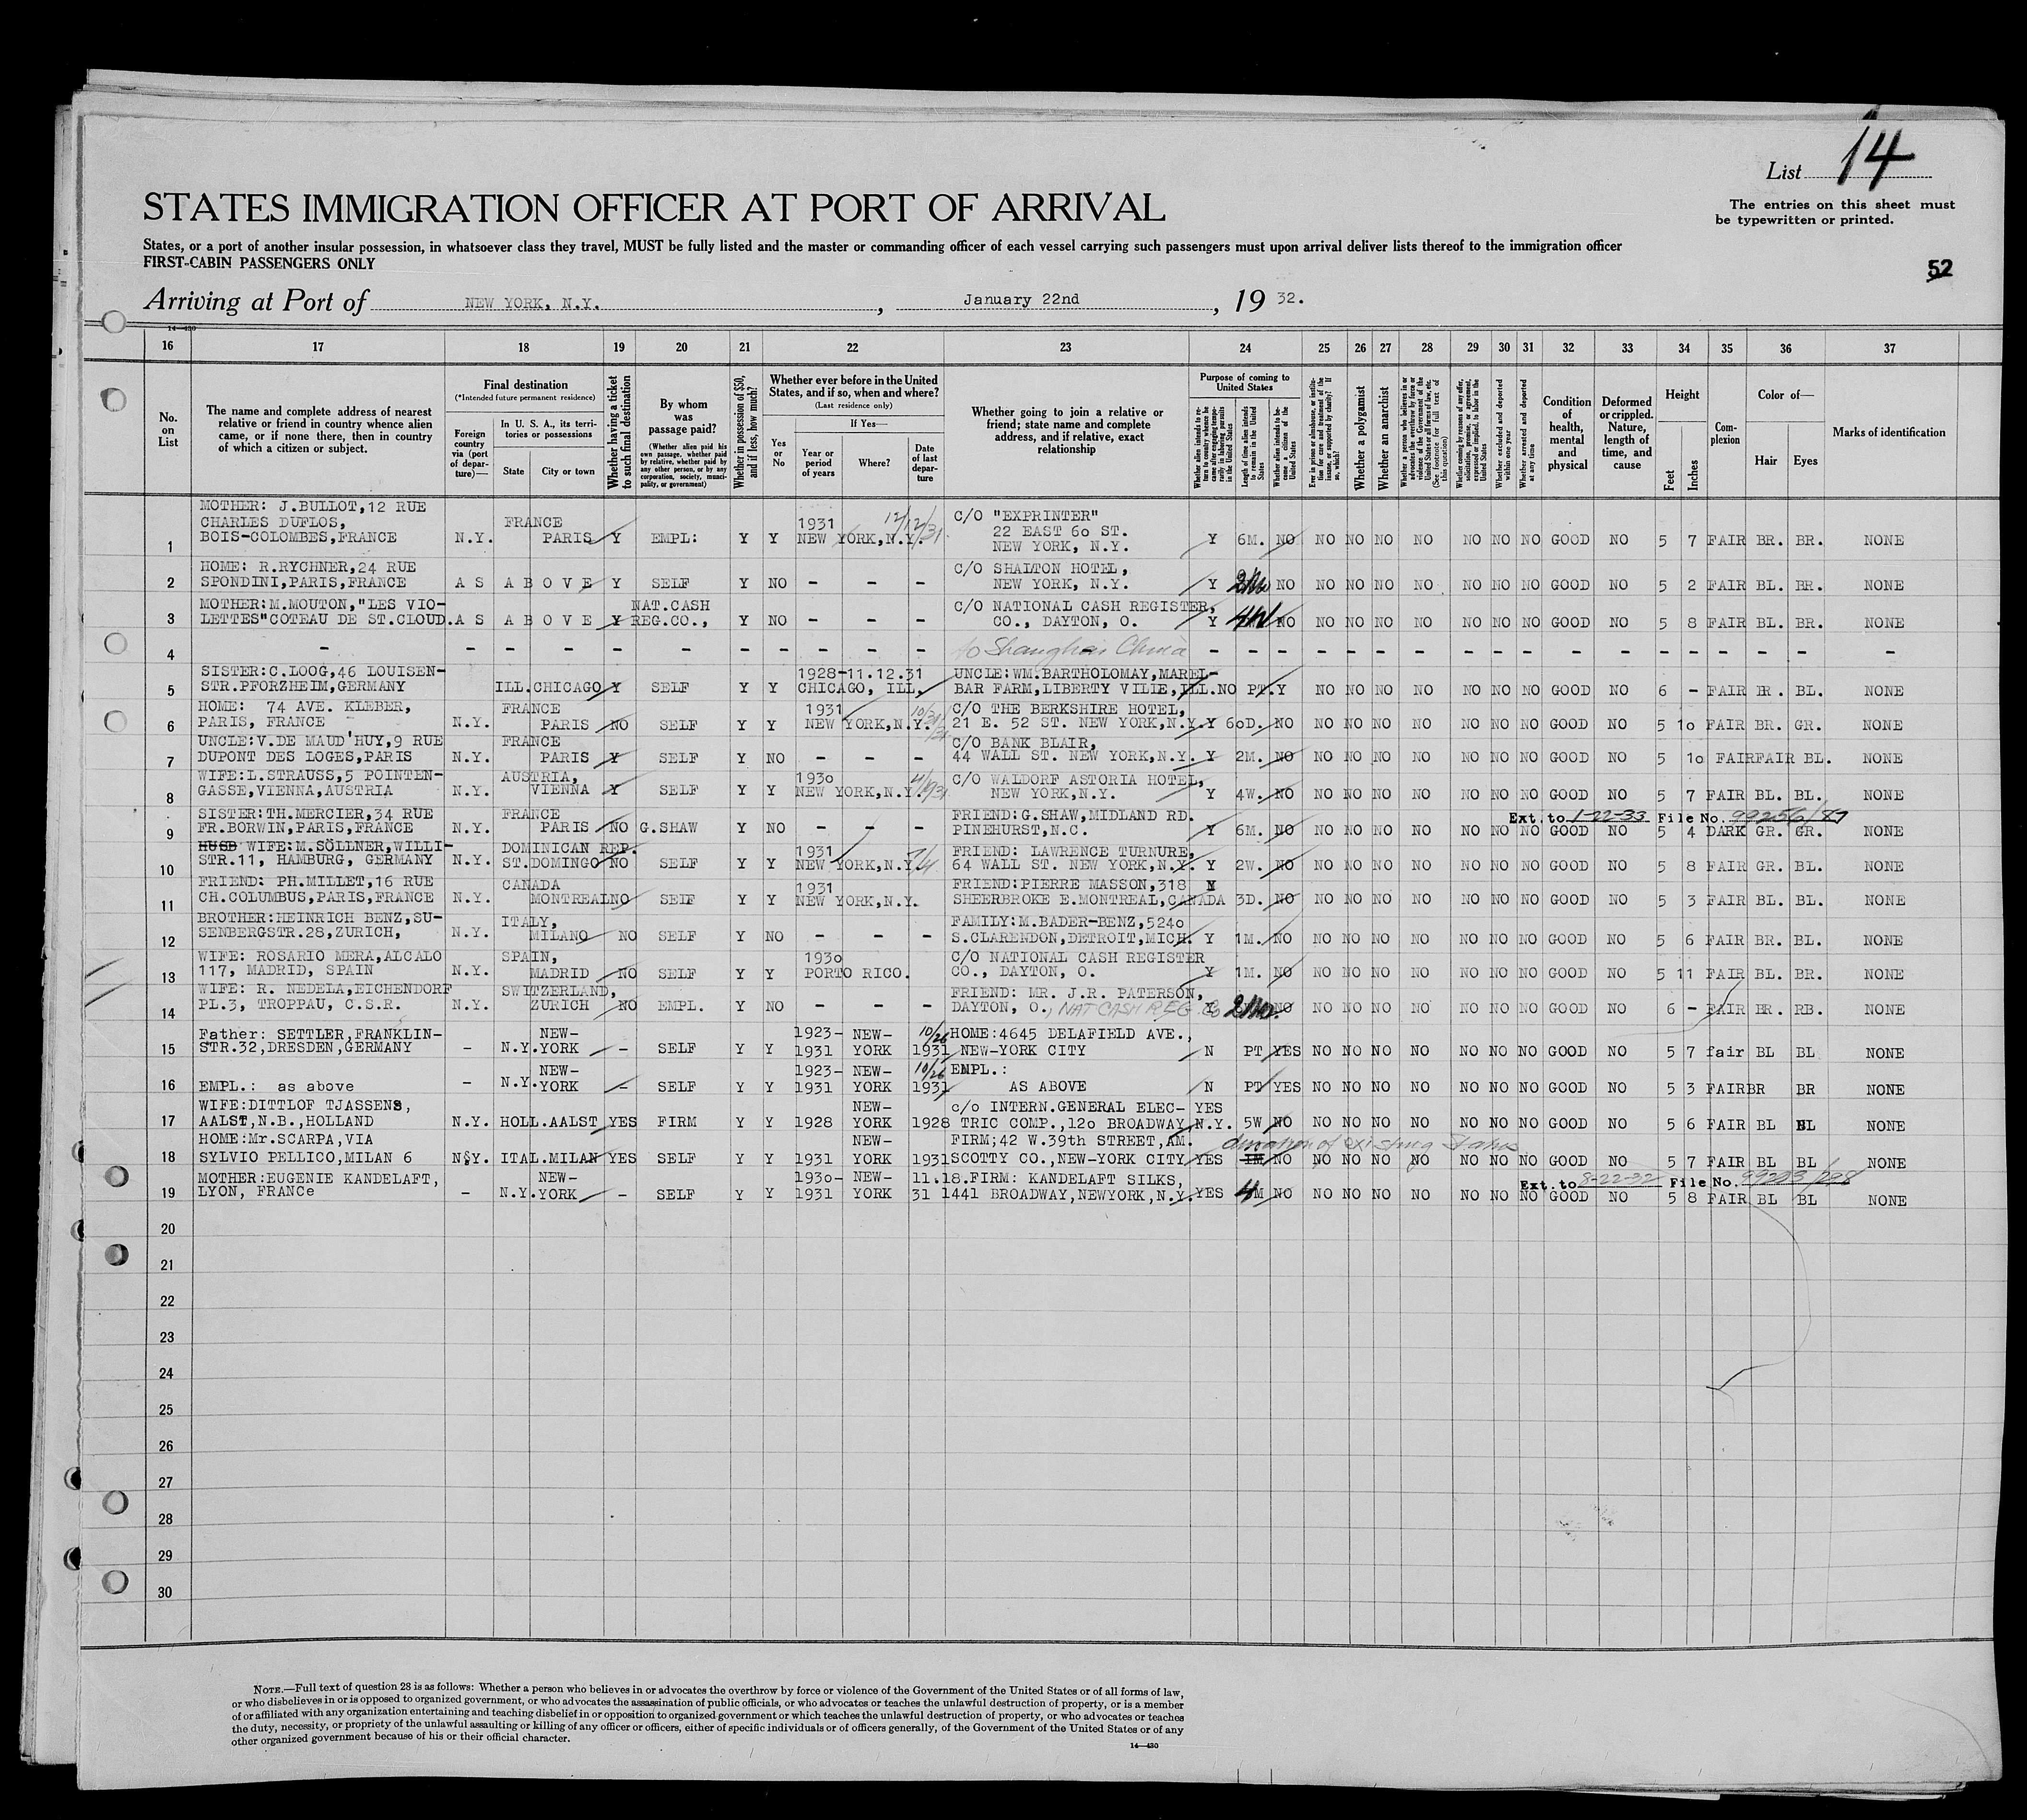 List 14
STATES IMMIGRATION OFFICER AT PORT OF ARRIVAL
The entries on this sheet must
be typewritten or printed.
States, or a port of another insular possession, in whatsoever class they travel, MUST be fully listed and the master or commanding officer of each vessel carrying such passengers must upon arrival deliver lists thereof to the immigration officer
FIRST-CABIN PASSENGERS ONLY
52
Arriving at Port of NEW YORK, N.Y. , January 22nd , 19 32.
14—430
16 17 18 19 20 21 22 23 24 25 26 27 28 29 30 31 32 33 34 35 36 37
No. on List
The name and complete address of nearest relative or friend in country whence alien came, or if none there, then in country of which a citizen or subject.
Final destination
(*Intended future permanent residence)
Foreign country via (port of departure)—
In U. S. A., its territories or possessions
State City or town
Whether having a ticket to such final destination
By whom was passage paid?
(Whether alien paid his own passage, whether paid by relative, whether paid by any other person, or by any corporation, society, municipality, or government)
Whether in possession of $50, and if less, how much?
Whether ever before in the United States, and if so, when and where?
(Last residence only)
Yes or No
If Yes—
Year or period of years Where? Date of last departure
Whether going to join a relative or friend; state name and complete address, and if relative, exact relationship
Purpose of coming to United States
Length of time alien intends to remain in the United States
Whether alien intends to become a citizen of the United States
Whether a polygamist
Whether an anarchist
Whether excluded and deported within one year
Whether arrested and deported at any time
Condition of health, mental and physical
Deformed or crippled. Nature, length of time, and cause
Height
Feet Inches
Complexion
Color of—
Hair Eyes
Marks of identification
MOTHER: J.BULLOT,12 RUE
CHARLES DUFLOS, FRANCE 1931 12/12/31 C/O "EXPRINTER" 22 EAST 6o ST.
1 BOIS-COLOMBES,FRANCE N.Y. PARIS Y EMPL: Y Y NEW YORK,N.Y. NEW YORK, N.Y. Y 6M. NO NO NO NO NO NO NO NO GOOD NO 5 7 FAIR BR. BR. NONE
HOME: R.RYCHNER,24 RUE C/O SHALTON HOTEL,
2 SPONDINI,PARIS,FRANCE A S A B O V E Y SELF Y NO - - - NEW YORK, N.Y. Y NO NO NO NO NO NO NO NO GOOD NO 5 2 FAIR BL. BR. NONE
MOTHER:M.MOUTON,"LES VIO- NAT.CASH C/O NATIONAL CASH REGISTER,
3 LETTES"COTEAU DE ST.CLOUD. A S A B O V E Y REG.CO., Y NO - - - CO., DAYTON, O. Y NO NO NO NO NO NO NO NO GOOD NO 5 8 FAIR BL. BR. NONE
4 - - - - - - - - - - to Shanghai China - - - - - - - - - - - - - - - - -
SISTER:C.LOOG,46 LOUISEN- 1928-11.12.31 UNCLE:WM.BARTHOLOMAY,MAREL-
5 STR.PFORZHEIM,GERMANY ILL.CHICAGO Y SELF Y Y CHICAGO, ILL, BAR FARM,LIBERTY VILIE,ILL. NO PT. Y NO NO NO NO NO NO NO GOOD NO 6 - FAIR BR. BL. NONE
HOME: 74 AVE. KLEBER, FRANCE 1931 C/O THE BERKSHIRE HOTEL,
6 PARIS, FRANCE N.Y. PARIS NO SELF Y Y NEW YORK,N.Y. 21 E. 52 ST. NEW YORK,N.Y. Y 6oD. NO NO NO NO NO NO NO NO GOOD NO 5 1o FAIR BR. GR. NONE
UNCLE:V.DE MAUD'HUY,9 RUE FRANCE C/O BANK BLAIR,
7 DUPONT DES LOGES,PARIS N.Y. PARIS Y SELF Y NO - - - 44 WALL ST. NEW YORK,N.Y. Y 2M. NO NO NO NO NO NO NO NO GOOD NO 5 1o FAIR FAIR BL. NONE
WIFE:L.STRAUSS,5 POINTEN- AUSTRIA, 193o C/O WALDORF ASTORIA HOTEL,
8 GASSE,VIENNA,AUSTRIA N.Y. VIENNA Y SELF Y Y NEW YORK,N.Y. NEW YORK,N.Y. Y 4W. NO NO NO NO NO NO NO NO GOOD NO 5 7 FAIR BL. BL. NONE
SISTER:TH.MERCIER,34 RUE FRANCE FRIEND:G.SHAW,MIDLAND RD. Ext. to 1-22-33 File No. 99256/87
9 FR.BORWIN,PARIS,FRANCE N.Y. PARIS NO G.SHAW Y NO - - - PINEHURST,N.C. Y 6M. NO NO NO NO NO NO NO NO GOOD NO 5 4 DARK GR. GR. NONE
HUSB WIFE:M.SÖLLNER,WILLI- DOMINICAN REP. 1931 FRIEND: LAWRENCE TURNURE,
10 STR.11, HAMBURG, GERMANY N.Y. ST.DOMINGO NO SELF Y Y NEW YORK,N.Y. 64 WALL ST. NEW YORK,N.Y. Y 2W. NO NO NO NO NO NO NO NO GOOD NO 5 8 FAIR GR. BL. NONE
FRIEND: PH.MILLET,16 RUE CANADA 1931 FRIEND:PIERRE MASSON,318 Y
11 CH.COLUMBUS,PARIS,FRANCE N.Y. MONTREAL NO SELF Y Y NEW YORK,N.Y. SHEERBROKE E.MONTREAL,CANADA 3D. NO NO NO NO NO NO NO NO GOOD NO 5 3 FAIR BL. BL. NONE
BROTHER:HEINRICH BENZ,SU- ITALY, FAMILY:M.BADER-BENZ,524o
12 SENBERGSTR.28,ZURICH, N.Y. MILANO NO SELF Y NO - - - S.CLARENDON,DETROIT,MICH. Y 1M. NO NO NO NO NO NO NO NO GOOD NO 5 6 FAIR BR. BL. NONE
WIFE: ROSARIO MERA,ALCALO SPAIN, 193o C/O NATIONAL CASH REGISTER
13 117, MADRID, SPAIN N.Y. MADRID NO SELF Y Y PORTO RICO. CO., DAYTON, O. Y 1M. NO NO NO NO NO NO NO NO GOOD NO 5 11 FAIR BL. BR. NONE
WIFE: R. NEDELA,EICHENDORF SWITZERLAND, FRIEND: MR. J.R. PATERSON,
14 PL.3, TROPPAU, C.S.R. N.Y. ZURICH NO EMPL. Y NO - - - DAYTON, O., NAT CASH REG. Co Y 2Mo. NO NO NO NO NO NO NO NO GOOD NO 6 - FAIR BR. RB. NONE
Father: SETTLER,FRANKLIN- NEW- 1923- NEW- 10/26 HOME:4645 DELAFIELD AVE.,
15 STR.32,DRESDEN,GERMANY - N.Y. YORK - SELF Y Y 1931 YORK 1931 NEW-YORK CITY N PT YES NO NO NO NO NO NO NO GOOD NO 5 7 fair BL BL NONE
NEW- 1923- NEW- 10/26 EMPL.:
16 EMPL.: as above - N.Y. YORK - SELF Y Y 1931 YORK 1931 AS ABOVE N PT YES NO NO NO NO NO NO NO GOOD NO 5 3 FAIR BR BR NONE
WIFE:DITTLOF TJASSENS, NEW- c/o INTERN.GENERAL ELEC- YES
17 AALST,N.B.,HOLLAND N.Y. HOLL.AALST YES FIRM Y Y 1928 YORK 1928 TRIC COMP.,12o BROADWAY,N.Y. 5W NO NO NO NO NO NO NO NO GOOD NO 5 6 FAIR BL BL NONE
HOME:Mr.SCARPA,VIA NEW- FIRM;42 W.39th STREET,AM. duration of existing status
18 SYLVIO PELLICO,MILAN 6 N.Y. ITAL.MILAN YES SELF Y Y 1931 YORK 1931 SCOTTY CO.,NEW-YORK CITY YES 1M NO NO NO NO NO NO NO NO GOOD NO 5 7 FAIR BL BL NONE
MOTHER:EUGENIE KANDELAFT, NEW- 193o- NEW- 11.18. FIRM: KANDELAFT SILKS, Ext. to 8-22-32 File No.
19 LYON, FRANCe - N.Y. YORK - SELF Y Y 1931 YORK 31 1441 BROADWAY,NEWYORK,N.Y. YES 4M NO NO NO NO NO NO NO NO GOOD NO 5 8 FAIR BL BL NONE
20
21
22
23
24
25
26
27
28
29
30
NOTE.—Full text of question 28 is as follows: Whether a person who believes in or advocates the overthrow by force or violence of the Government of the United States or of all forms of law,
or who disbelieves in or is opposed to organized government, or who advocates the assassination of public officials, or who advocates or teaches the unlawful destruction of property, or is a member
of or affiliated with any organization entertaining and teaching disbelief in or opposition to organized government or which teaches the unlawful destruction of property, or who advocates or teaches
the duty, necessity, or propriety of the unlawful assaulting or killing of any officer or officers, either of specific individuals or of officers generally, of the Government of the United States or of any
other organized government because of his or their official character.
14—430